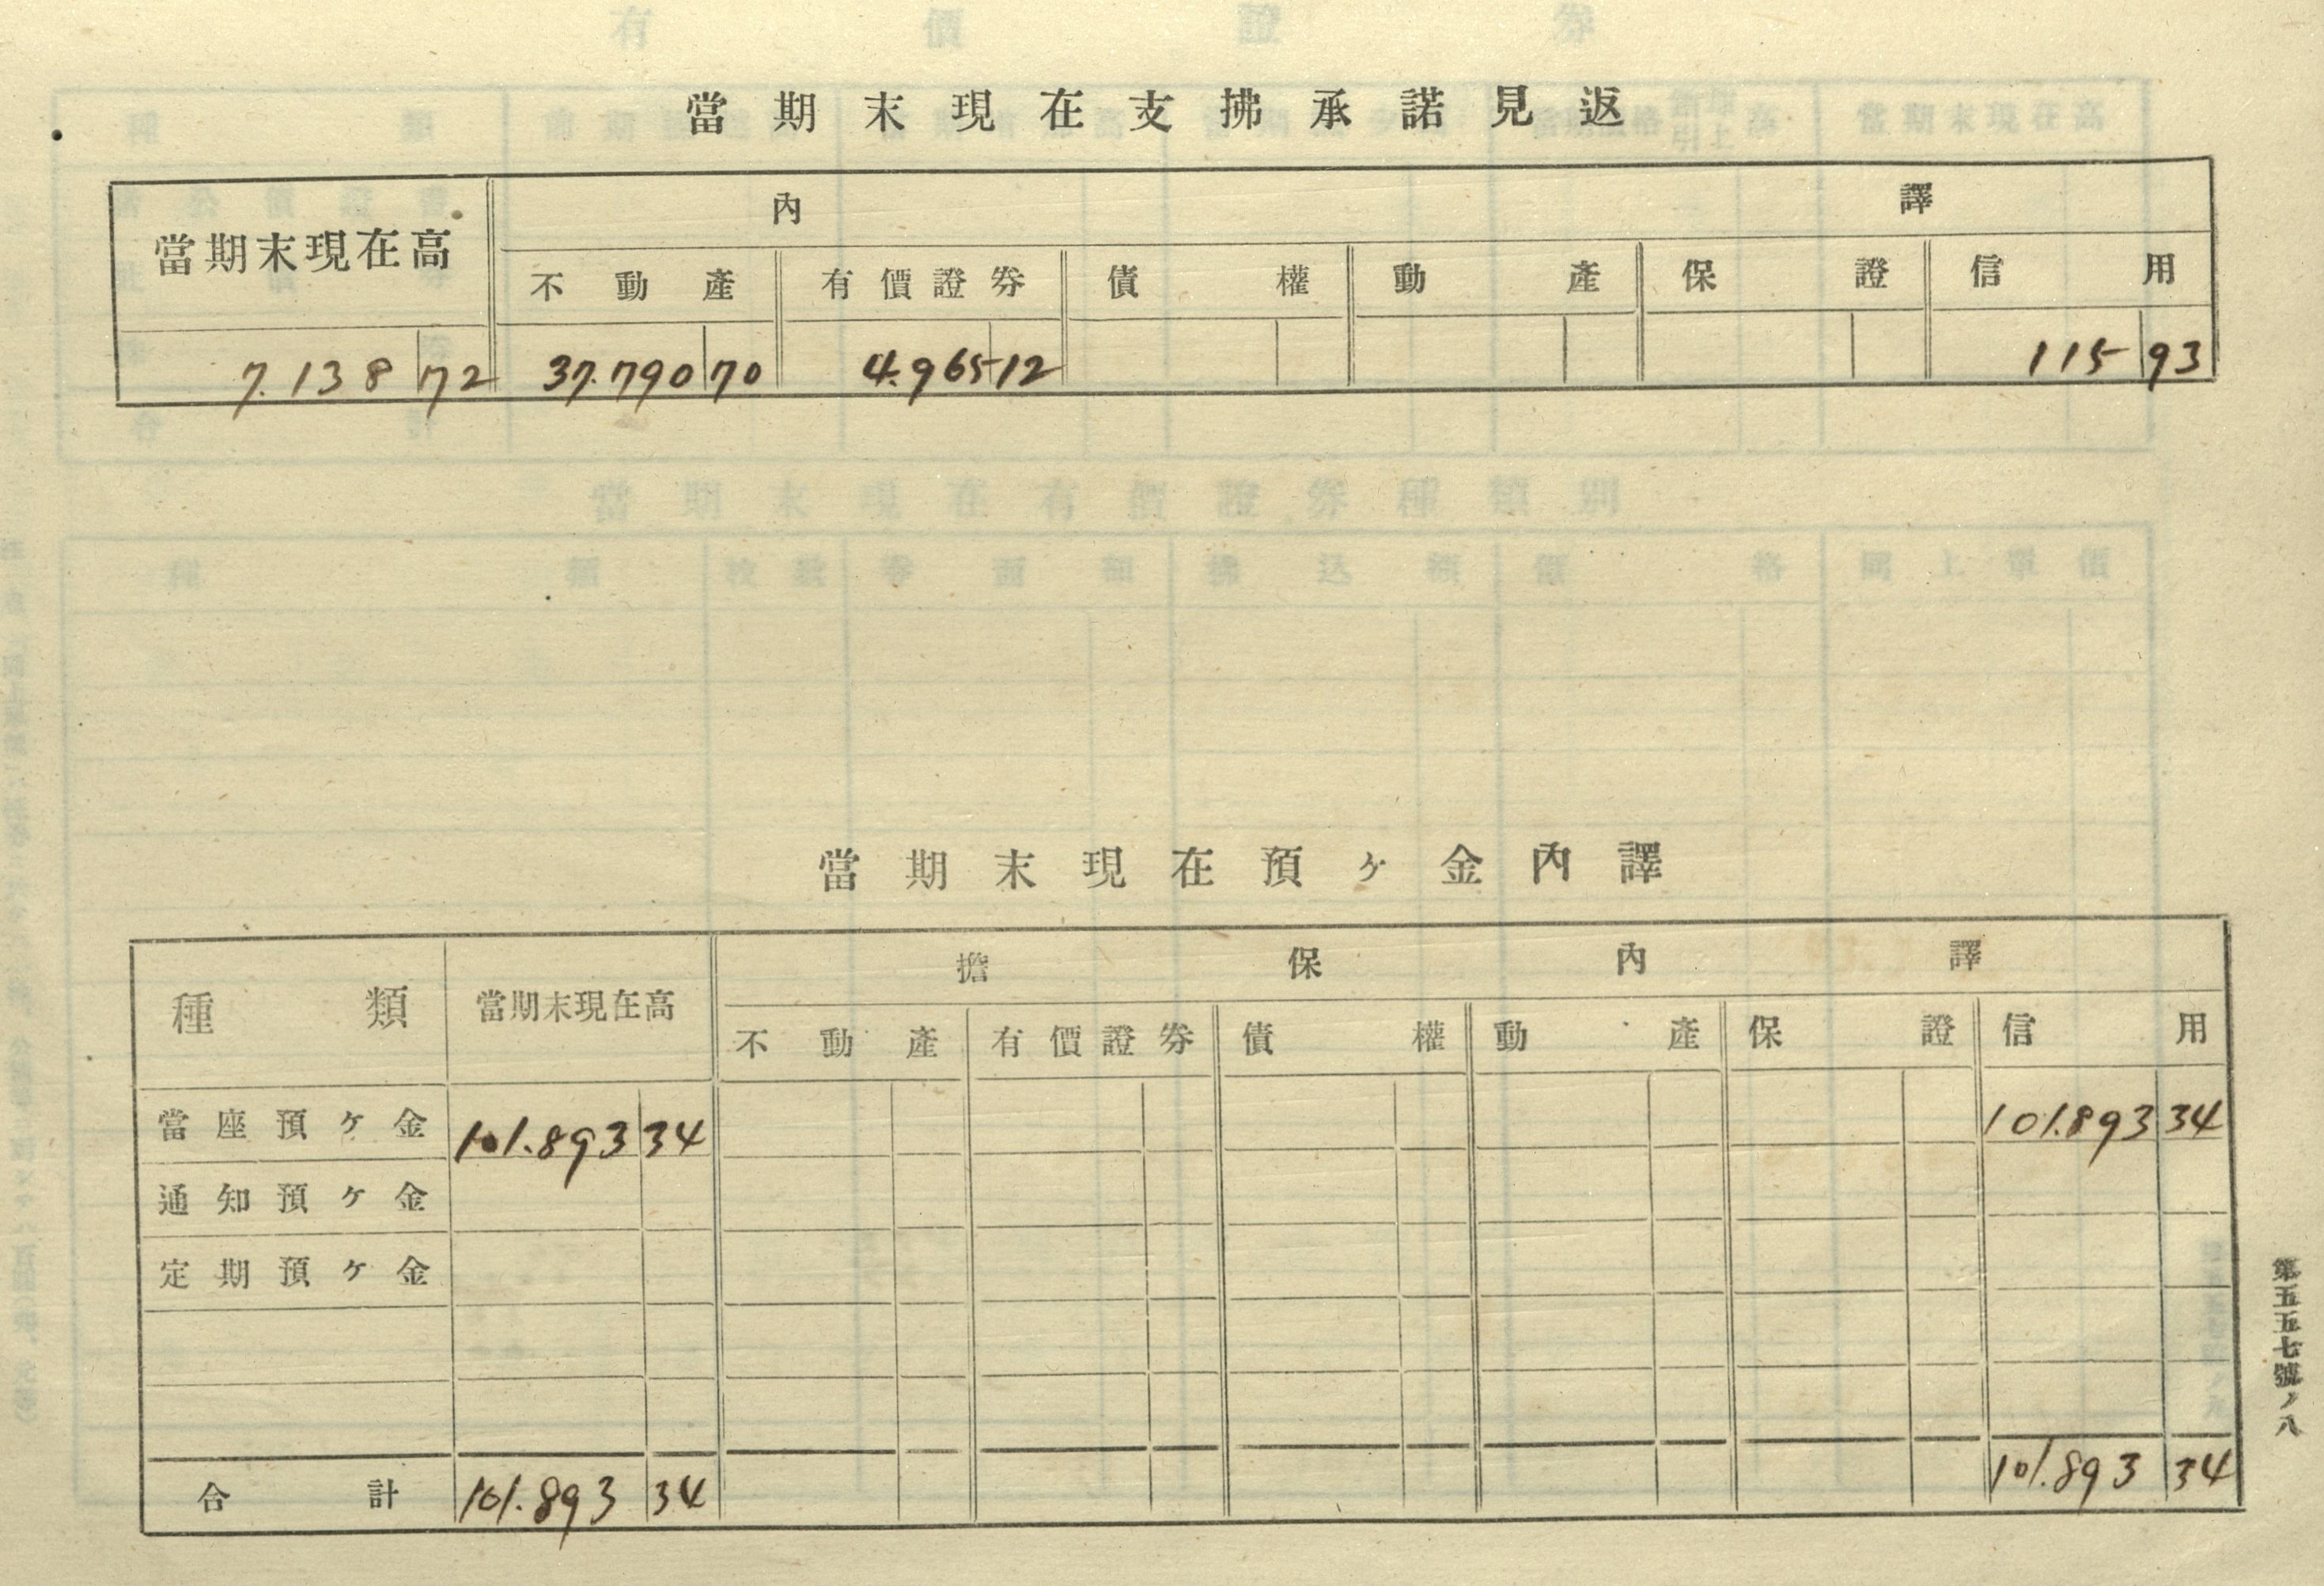 當期末現在支拂承諾見返
當期末現在高 內譯
不動產 有價證券 債權 動產 保證 信用
7.138 72 37.790 70 4.965 12 115 93
當期末現在預ヶ金內譯
種類 當期末現在高 擔保內譯
不動產 有價證券 債權 動產 保證 信用
當座預ヶ金 101.893 34 101.893 34
通知預ヶ金
定期預ヶ金
合計 101.893 34 101.893 34
第五五七號ノ八